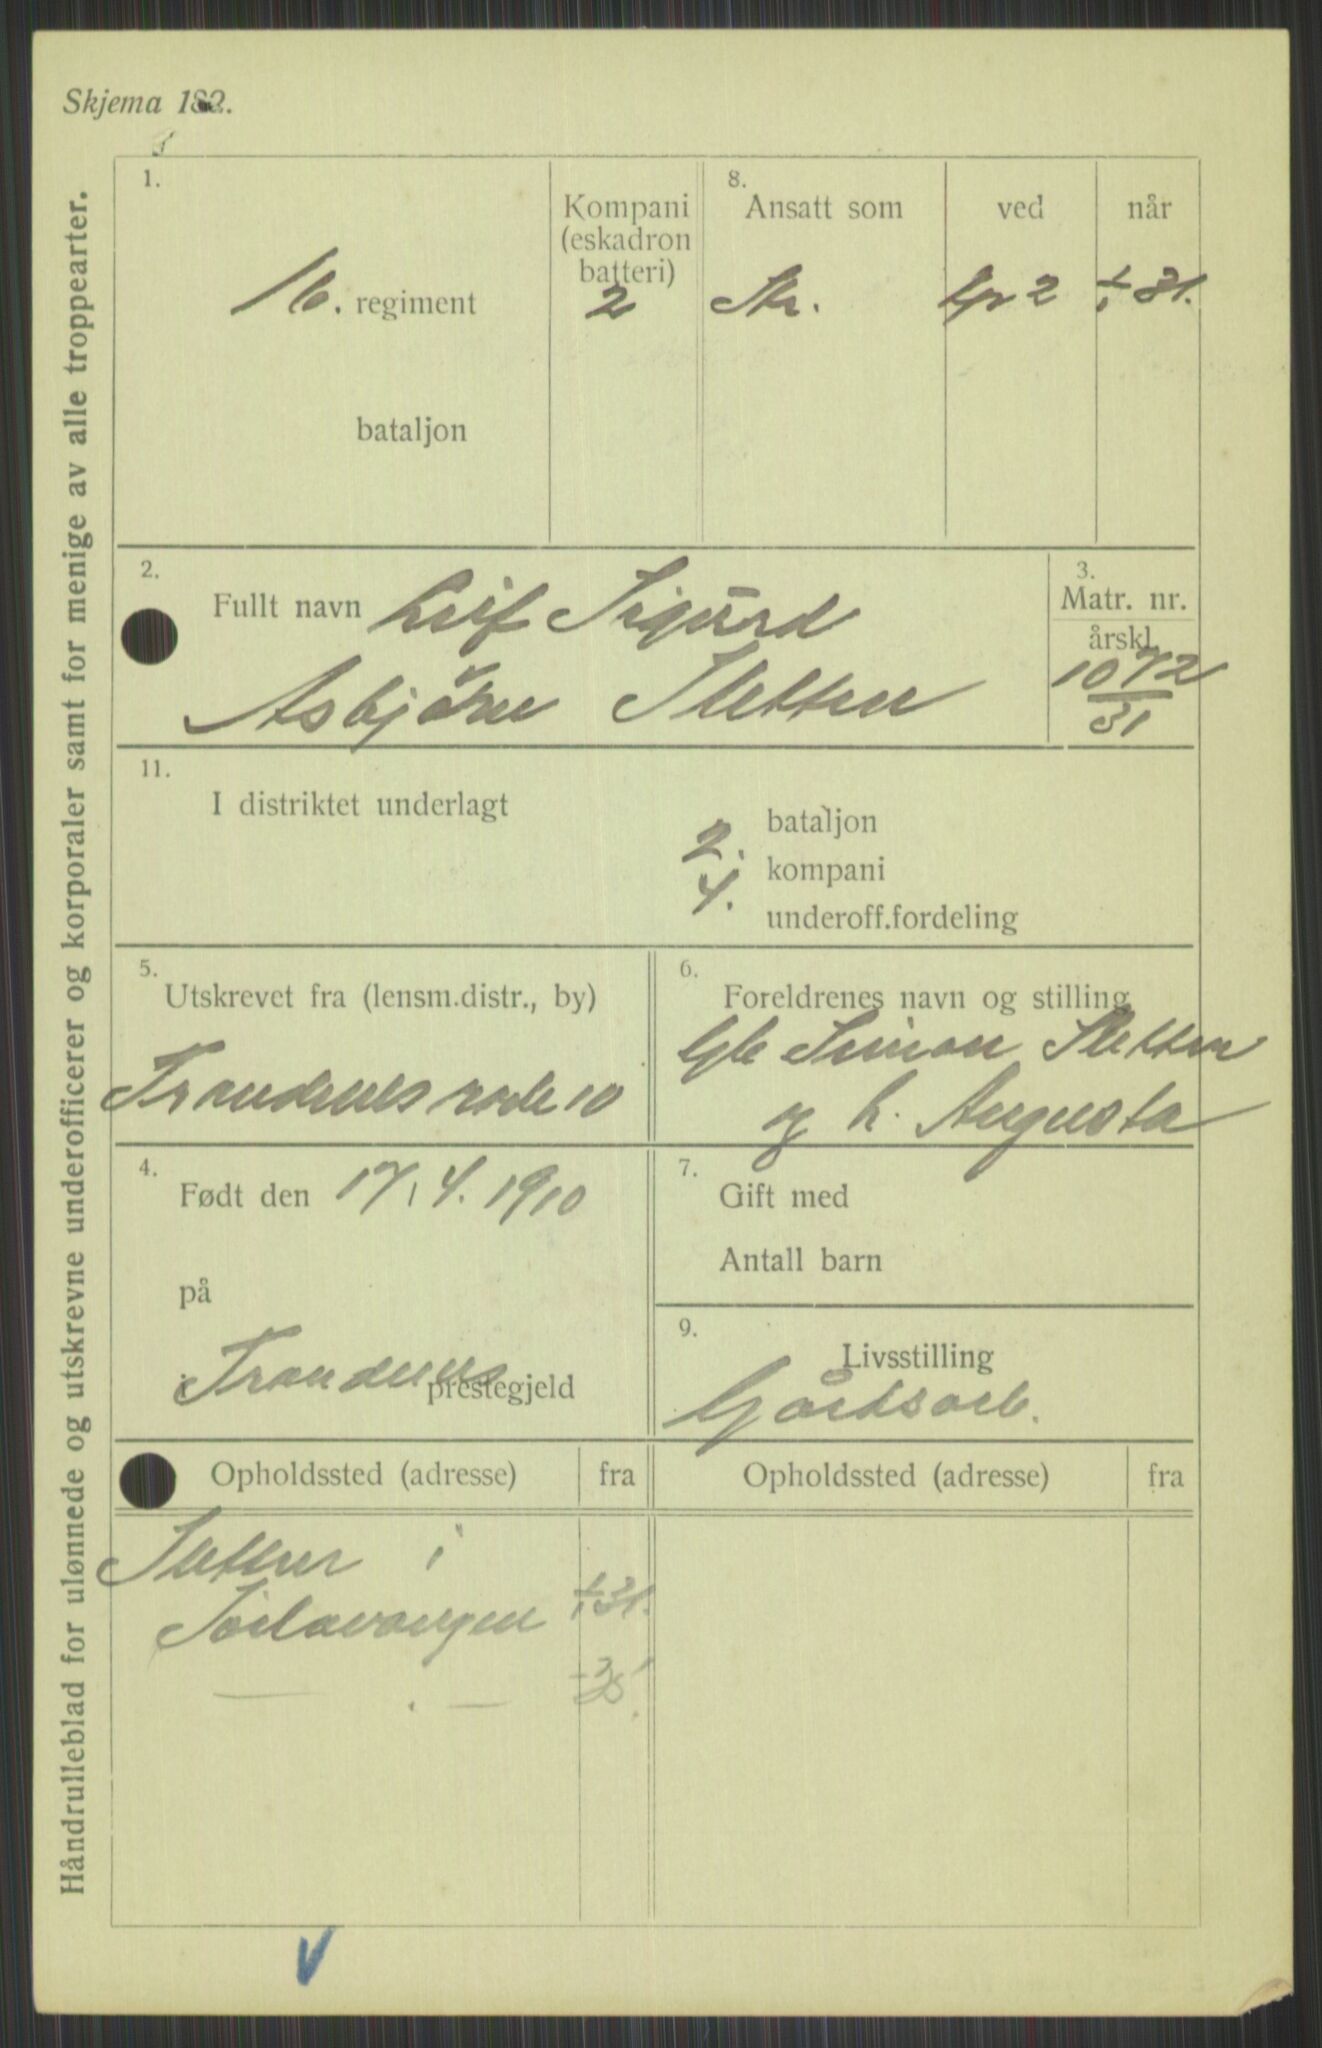 Skjema 182.
Håndrulleblad for ulønnede og utskrevne underofficerer og korporaler samt for menige av alle troppearter.
1.
16. regiment
bataljon
Kompani
(eskadron
batteri)
2
8.
Ansatt som ved når
Str. Ir 2 1/1 31.
2.
Fullt navn Leif Sigurd
Asbjörn Sletten
3.
Matr. nr.
årskl.
1072
31
11.
I distriktet underlagt
bataljon
2. kompani
4. underoff.fordeling
5.
Utskrevet fra (lensm.distr., by)
Trondenes rode 10
6.
Foreldrenes navn og stilling
Gbr Simon Sletten
og h. Augusta
4.
Født den 17/4. 1910
på
i Trondenes prestegjeld
7.
Gift med
Antall barn
9.
Livsstilling
Gårdsarb.
Opholdssted (adresse) fra
Opholdssted (adresse) fra
Sletten i
Sörlavangen 1/1 31.
— . —